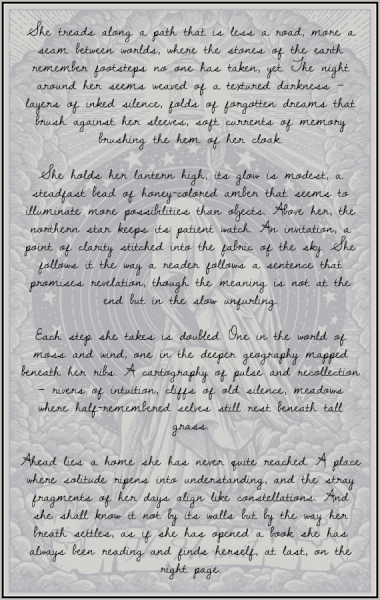 She treads along a path that is less a road, more a
seam between worlds, where the stones of the earth
remember footsteps no one has taken, yet. The night
around her seems weaved of a textured darkness –
layers of inked silence, folds of forgotten dreams that
brush against her sleeves, soft currents of memory
brushing the hem of her cloak.
She holds her lantern high, its glow is modest, a
steadfast bead of honey-colored amber that seems to
illuminate more possibilities than objects. Above her, the
northern star keeps its patient watch. An invitation, a
point of clarity stitched into the fabric of the sky. She
follows it the way a reader follows a sentence that
promises revelation, though the meaning is not at the
end but in the slow unfurling.
Each step she takes is doubled. One in the world of
moss and wind, one in the deeper geography mapped
beneath her ribs. A cartography of pulse and recollection
– rivers of intuition, cliffs of old silence, meadows
where half-remembered selves still rest beneath tall
grass.
Ahead lies a home she has never quite reached. A place
where solitude ripens into understanding, and the stray
fragments of her days align like constellations. And
she shall know it not by its walls but by the way her
breath settles, as if she has opened a book she has
always been reading and finds herself, at last, on the
right page.